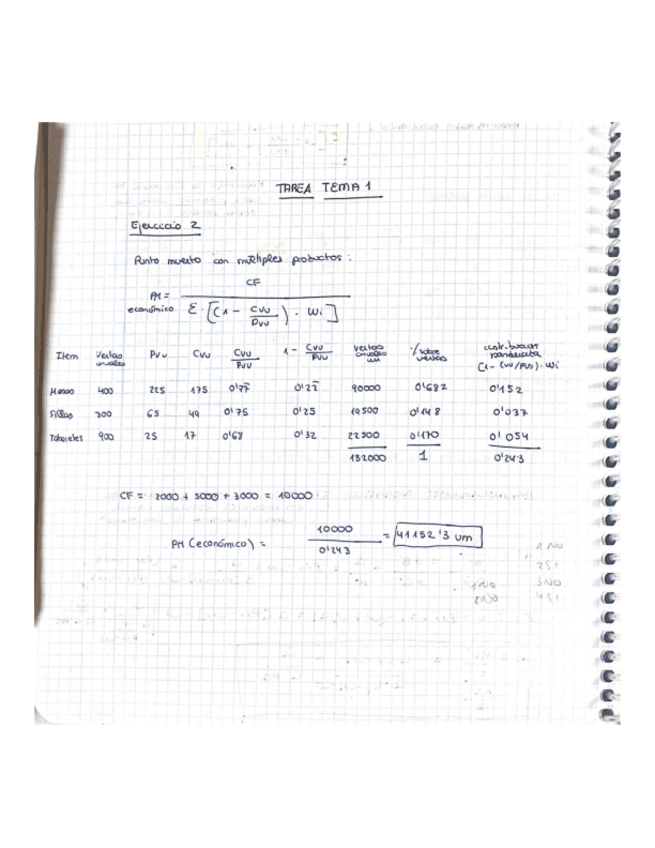 TAREA TEMA 1
Ejercicio 2
Punto muerto con múltiples productos:
PM económico = CF / Σ · [(1 - CVu / PVu) · Wi]
Item Ventas anuales PVu CVu CVu/PVu 1 - CVu/PVu ventas anuales um % sobre ventas contribución ponderada (1 - CVu/PVu) · Wi
Mesas 400 225 175 0'77 0'22 90000 0'682 0'152
Sillas 300 65 49 0'75 0'25 19500 0'148 0'037
Taburetes 900 25 17 0'68 0'32 22500 0'170 0'054
132000 1 0'243
CF = 2000 + 5000 + 3000 = 10000
PM (económico) = 10000 / 0'243 = 41152'3 um